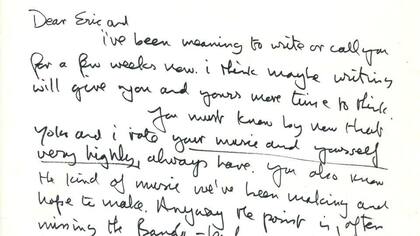 Dear Eric and
i've been meaning to write or call you
for a few weeks now. i think maybe writing
will give you and yours more time to think.
You must know by now that
Yoko and i rate your music and yourself
very highly, always have. you also know
the kind of music we've been making and
hope to make. Anyway the point is, after
missing the Bangla-